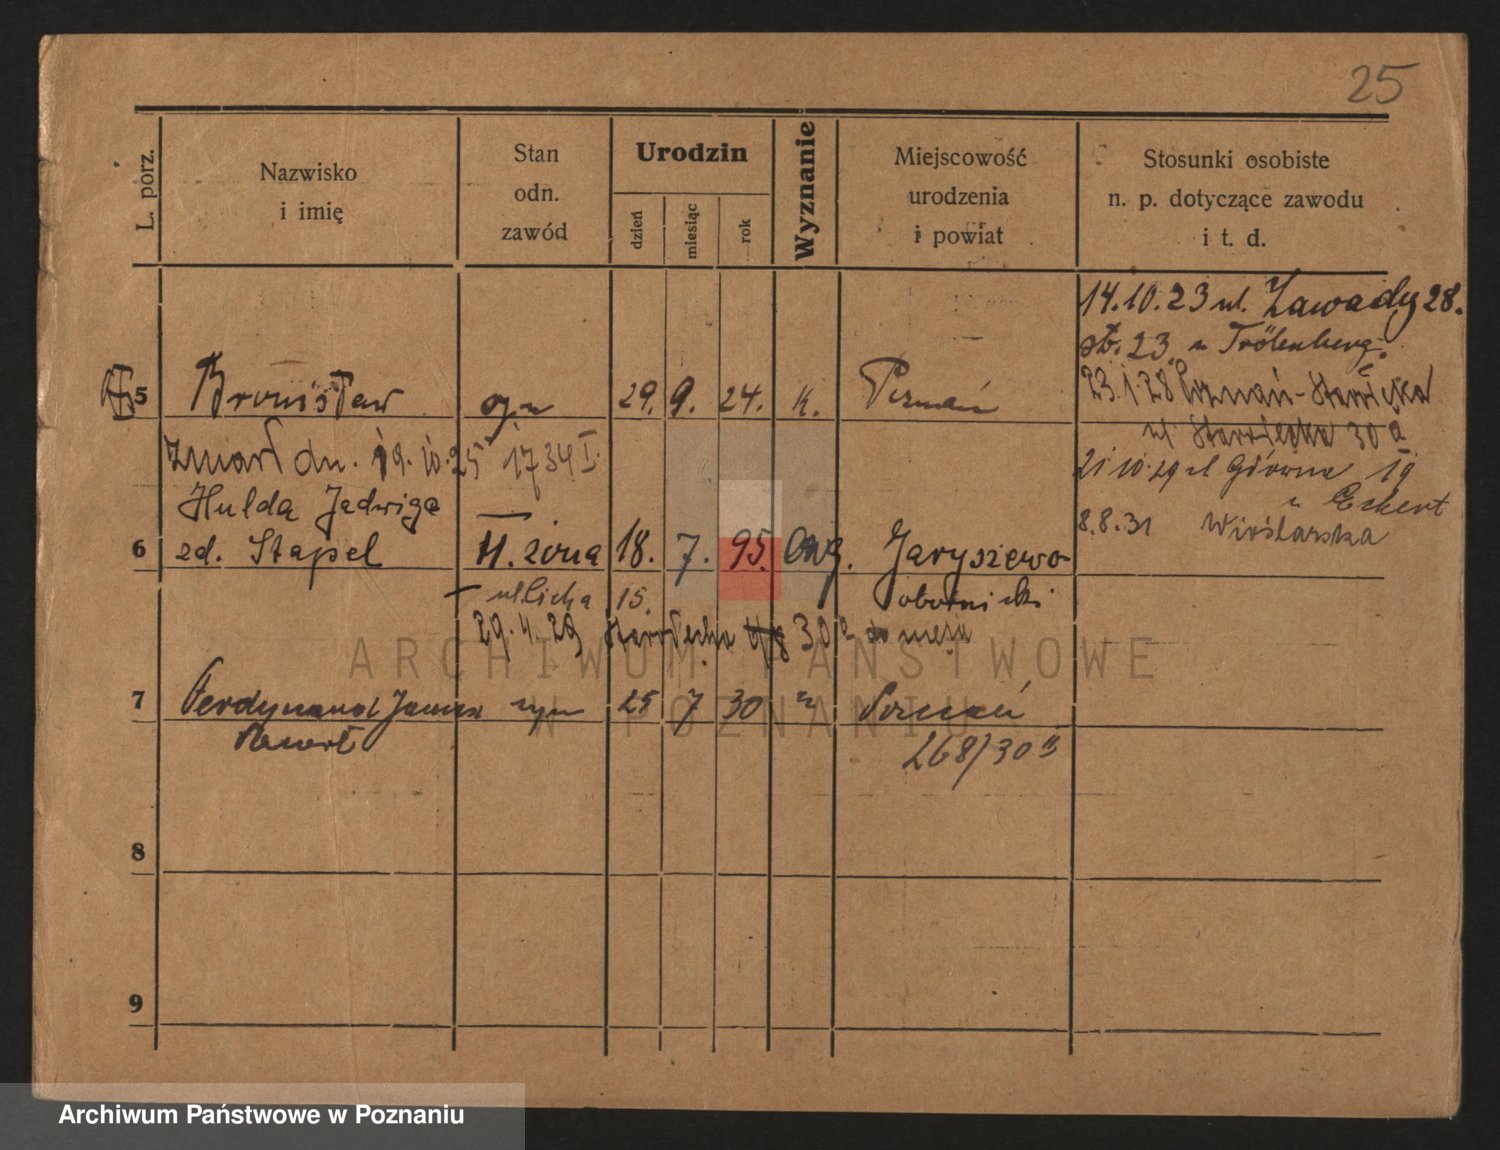 25
L. porz.
Nazwisko
i imię
Stan
odn.
zawód
Urodzin
dzień
miesiąc
rok
Wyznanie
Miejscowość
urodzenia
i powiat
Stosunki osobiste
n. p. dotyczące zawodu
i t. d.
14.10.23 ul. Zawady 28.
23 Trölenberg.
5 Bronisław syn 29. 9. 24. K. Poznań
23.1.28 Poznań-Starołęka
ul Starołęka 30 a
zmarł dn. 19.10.25 1734 I
21 10.29 ul Główna 19
Eckert
Hulda Jadwiga
8.8.31 Wioślarska
6 zd. Stapel II. żona 18. 7. 95. Ewg. Jaryszewo
ul Cicha 15. obornicki
29.4.29 Starołęka 30 a do męża
7 Ferdynand syn 25 7 30 Poznań
268/30 II
8
9
ARCHIWUM PAŃSTWOWE
W POZNANIU
Archiwum Państwowe w Poznaniu